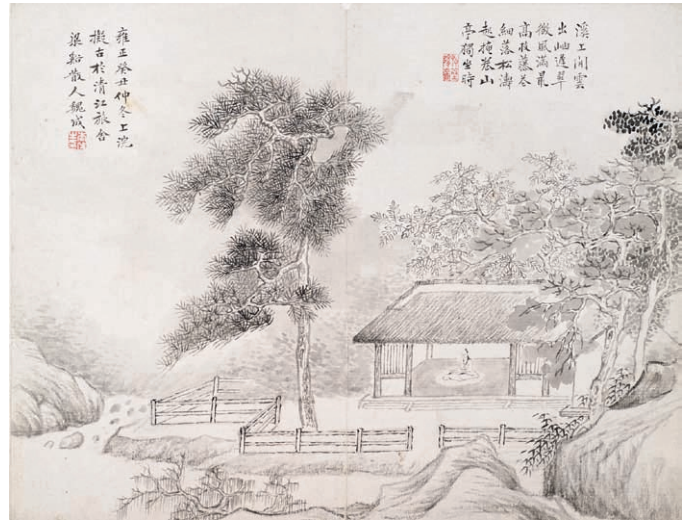 溪上閒雲
出岫遲翠
微風滿最
高枝藤花
細落松濤
起掩卷山
亭獨坐時
雍正癸丑仲冬上浣
擬古於清江旅舍
梁谿散人魏成